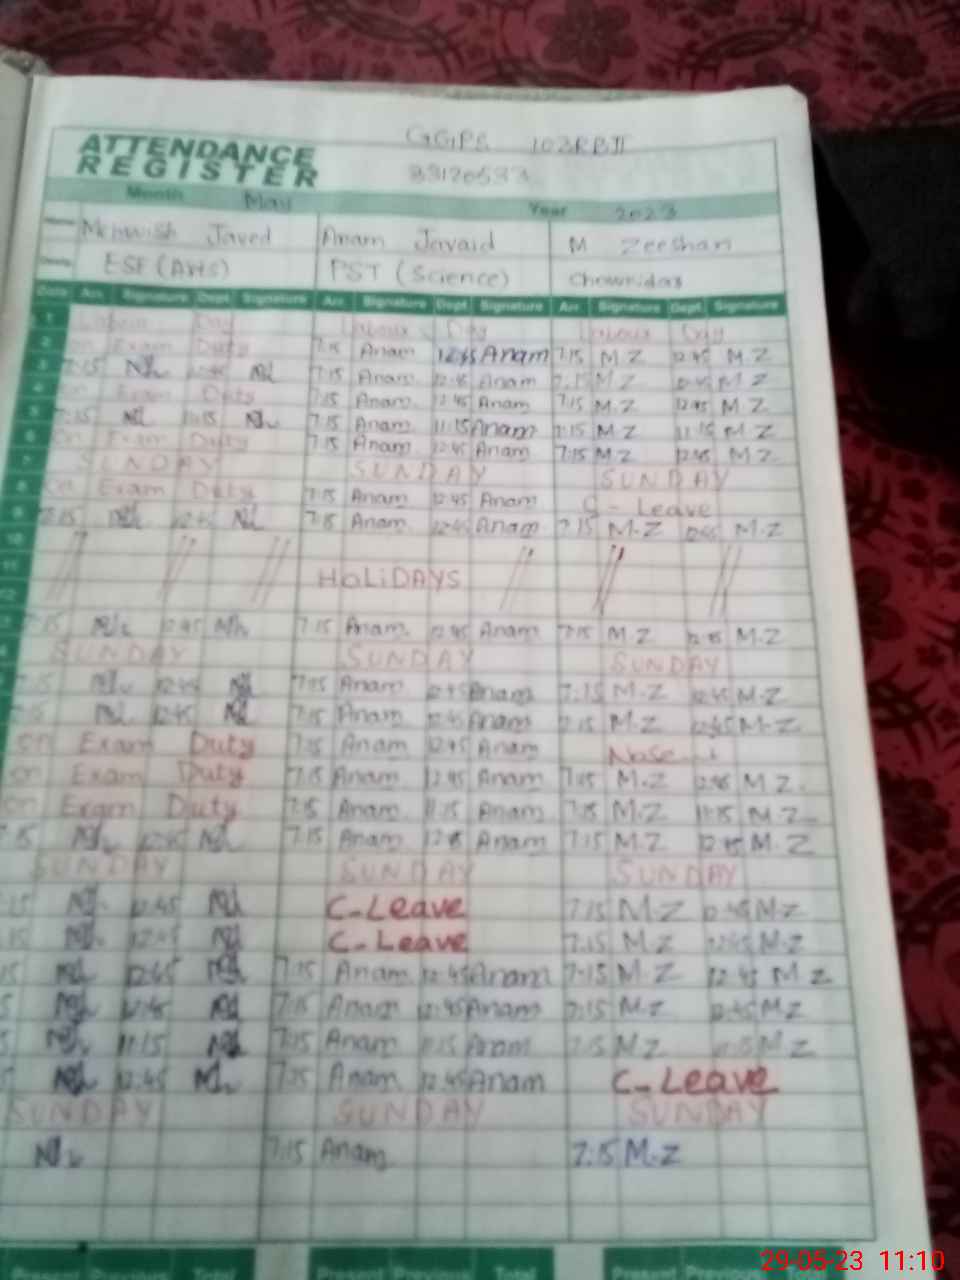 GGPS 103RBII
ATTENDANCE
REGISTER
33120533
Month May Year 2023
Mehwish Javed Anam Javaid M Zeeshan
ESE (Arts) PST (Science) Chowkidar
Date Arr. Signature Dept. Signature Arr. Signature Dept. Signature Arr. Signature Dept. Signature
1 Labour Day Labour Day Labour Day
2 on Exam Duty 7:15 Anam 12:45 Anam 7:15 M.Z 12:45 M.Z
3 7:15 12:45 7:15 Anam 12:45 Anam 7:15 M.Z 12:45 M.Z
4 on Exam Duty 7:15 Anam 12:45 Anam 7:15 M.Z 12:45 M.Z
5 7:15 11:15 7:15 Anam 11:15 Anam 7:15 M.Z 11:15 M.Z
6 on Exam Duty 7:15 Anam 12:45 Anam 7:15 M.Z 12:45 M.Z
7 SUNDAY SUNDAY SUNDAY
8 on Exam Duty 7:15 Anam 12:45 Anam C-Leave
9 7:15 12:45 7:15 Anam 12:45 Anam 7:15 M.Z 12:45 M.Z
10
11 HOLIDAYS
12
7:15 12:45 7:15 Anam 12:45 Anam 7:15 M.Z 12:45 M.Z
SUNDAY SUNDAY SUNDAY
7:15 12:45 7:15 Anam 12:45 Anam 7:15 M.Z 12:45 M.Z
7:15 12:45 7:15 Anam 12:45 Anam 7:15 M.Z 12:45 M.Z
on Exam Duty 7:15 Anam 12:45 Anam
on Exam Duty 7:15 Anam 12:45 Anam 7:15 M.Z 12:45 M.Z
on Exam Duty 7:15 Anam 11:15 Anam 7:15 M.Z 11:15 M.Z
7:15 12:45 7:15 Anam 12:45 Anam 7:15 M.Z 12:45 M.Z
SUNDAY SUNDAY SUNDAY
:15 12:45 C-Leave 7:15 M.Z 12:45 M.Z
:15 12:45 C-Leave 7:15 M.Z 12:45 M.Z
15 12:45 7:15 Anam 12:45 Anam 7:15 M.Z 12:45 M.Z
5 12:45 7:15 Anam 12:45 Anam 7:15 M.Z 12:45 M.Z
5 11:15 7:15 Anam 11:15 Anam 7:15 M.Z 11:15 M.Z
5 12:45 7:15 Anam 12:45 Anam C-Leave
SUNDAY SUNDAY SUNDAY
7:15 Anam 7:15 M.Z
29-05-23 11:10